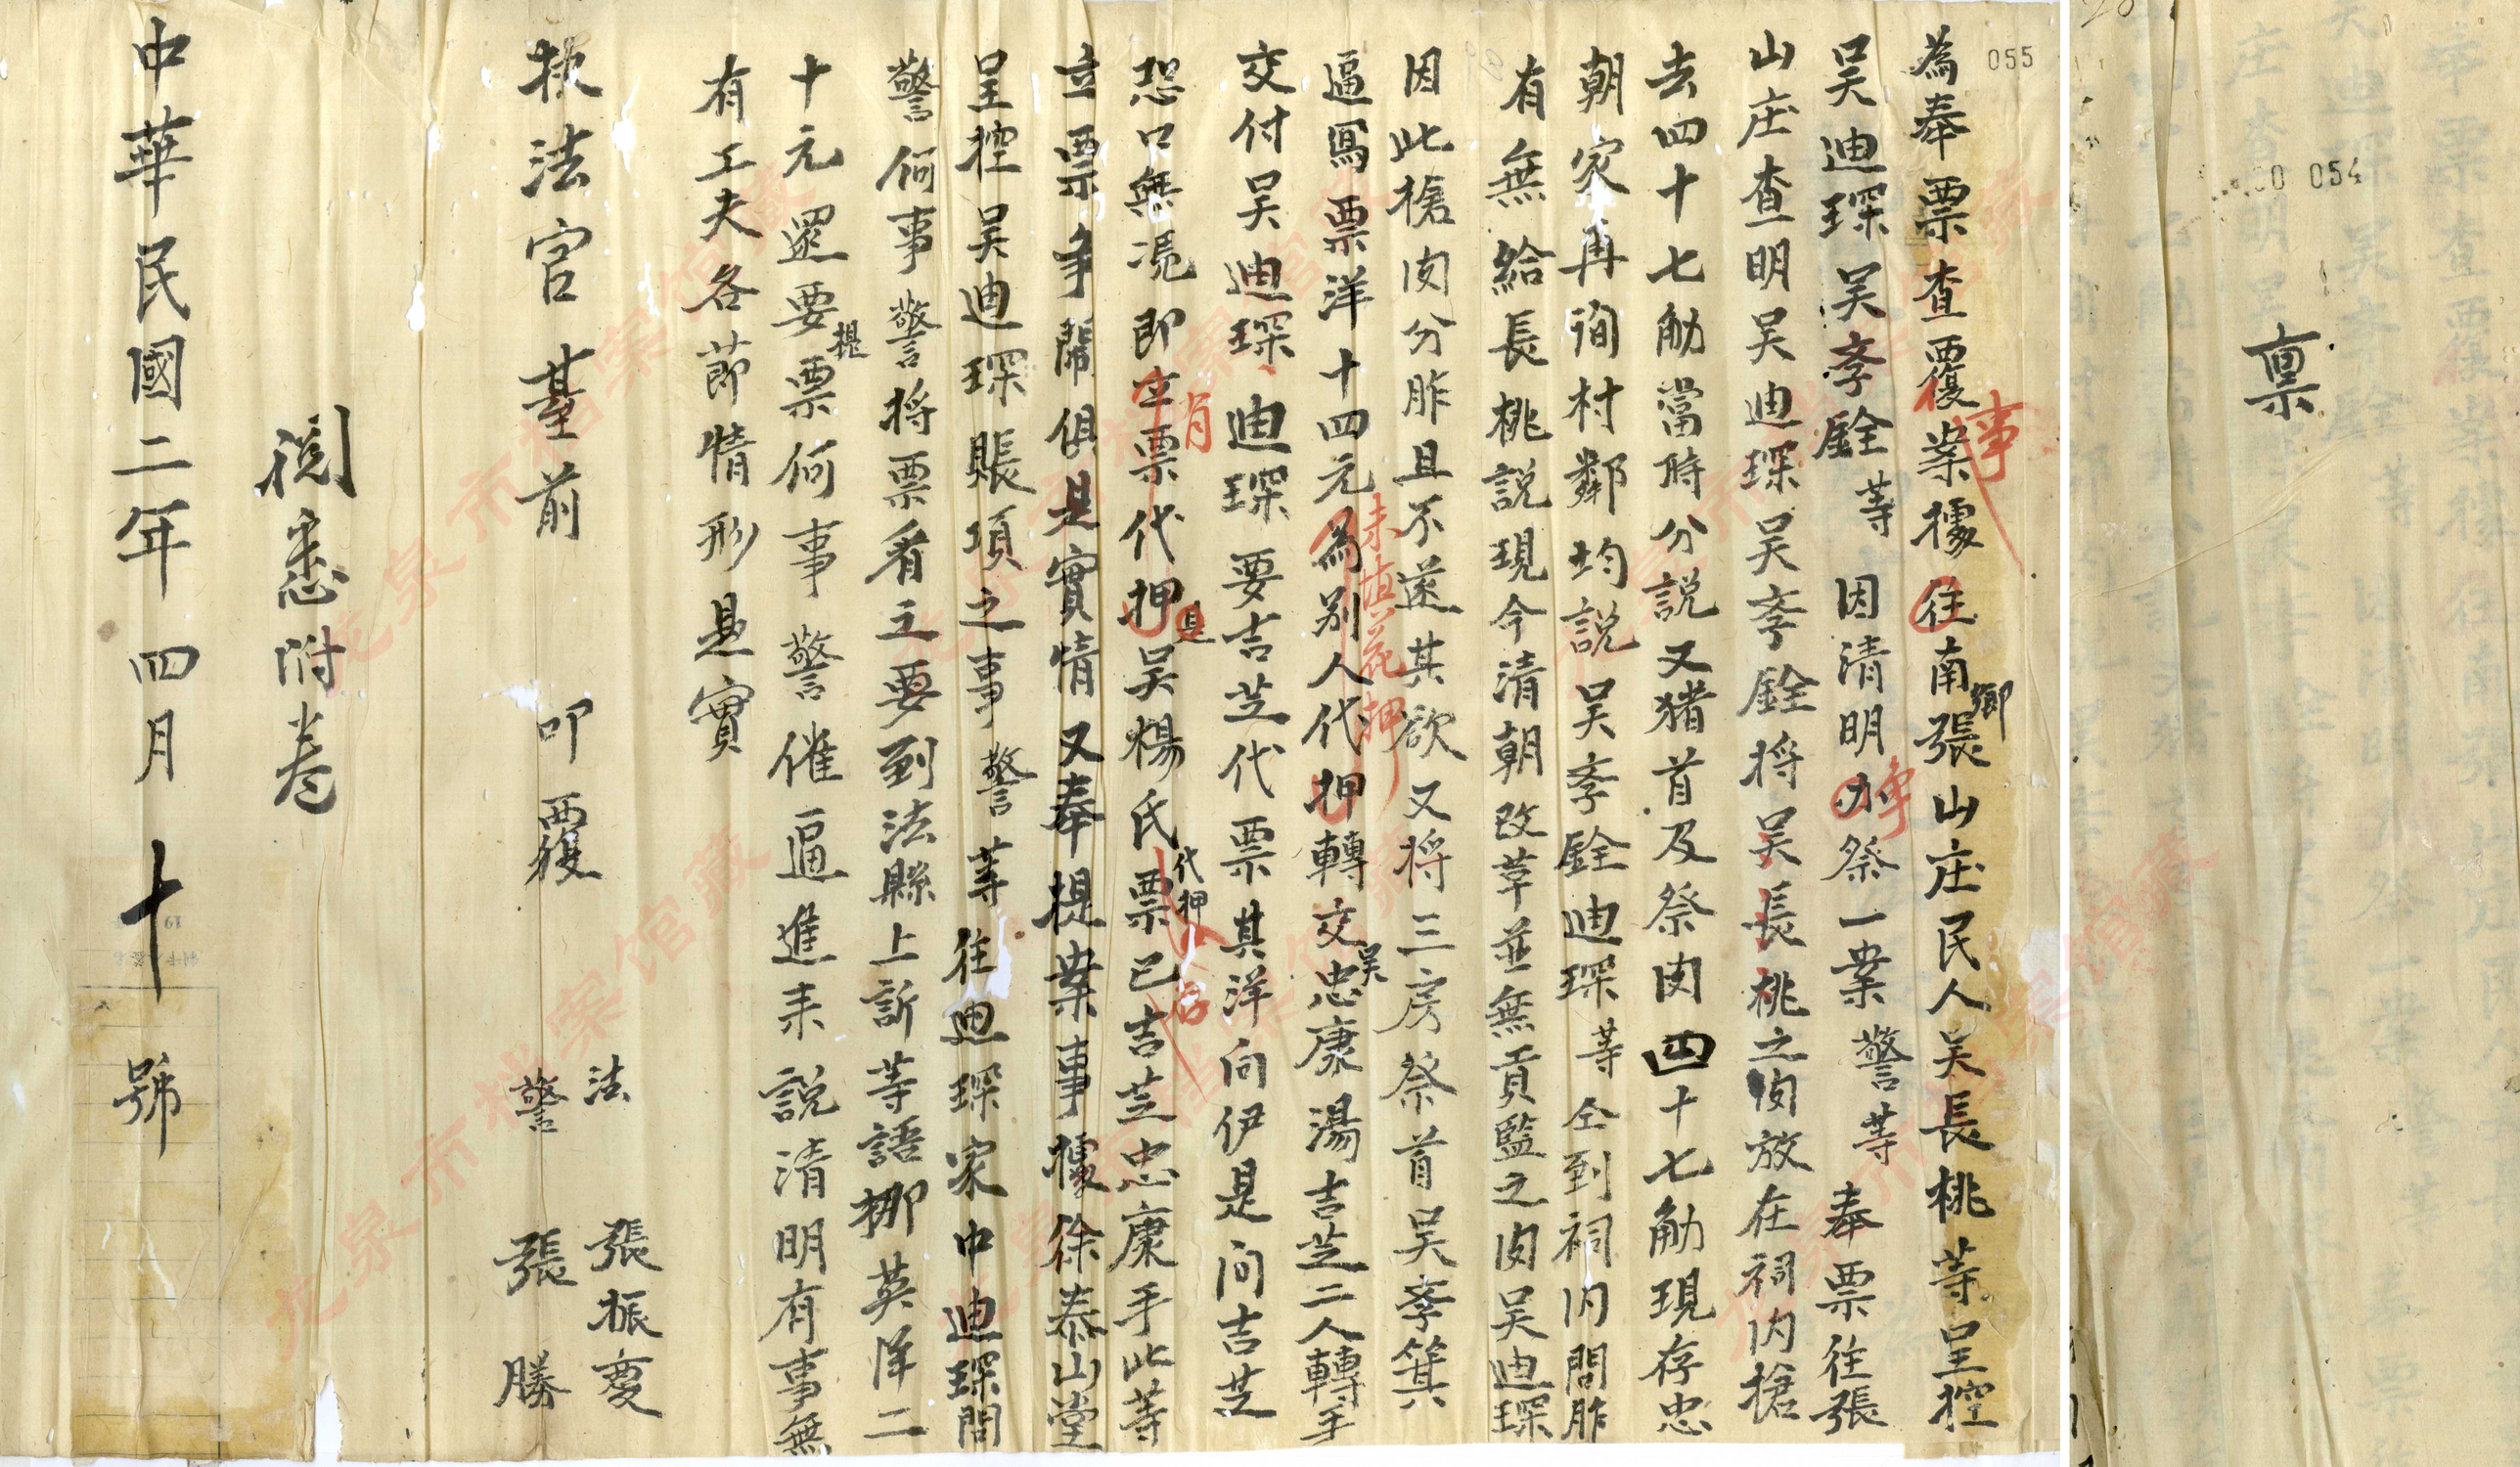 稟
054
055
為奉票查覆業據往南鄉張山庄民人吳長桃等呈控
事
吳迪琛吳季銓等因清明办祭一業警等奉票往張
爭
山庄查明吳迪琛吳季銓将吳長桃之肉放在祠内搶
去四十七觔當時分説又猪首及祭肉四十七觔現存忠
朝家再詢村鄰均説吳季銓迪琛等仝到祠内問胙
有無給長桃説現今清朝改革並無貢監之肉吳迪琛
因此搶肉分胙且不遂其欲又将三房祭首吳季箕
逼寫票洋十四元為别人代押轉交吳忠康湯吉芝二人轉手
未填花押
交付吳迪琛迪琛要吉芝代票其洋向伊是问吉芝
恐口無凴即立票代押是吳楊氏票代押已吉芝忠康手此等
肖
立票爭鬧俱是實情又奉提業事據徐泰山堂
呈控吳迪琛賬項之事警等往迪琛家中迪琛問
警何事警将票看立要到法縣上訴等語挪英洋二
十元還要提票何事警催逼進来説清明有事無
有工夫各節情形是實
執法官臺前 叩覆
法 張振慶
警 張勝
閱悉附卷
中華民國二年四月十號
龙泉市档案馆藏